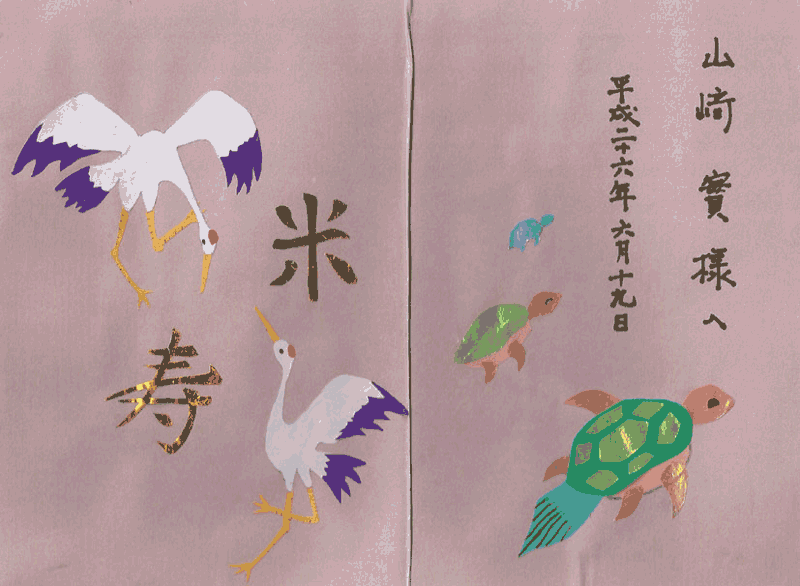 山崎 實 様へ
平成二十六年 六月十九日
米
寿